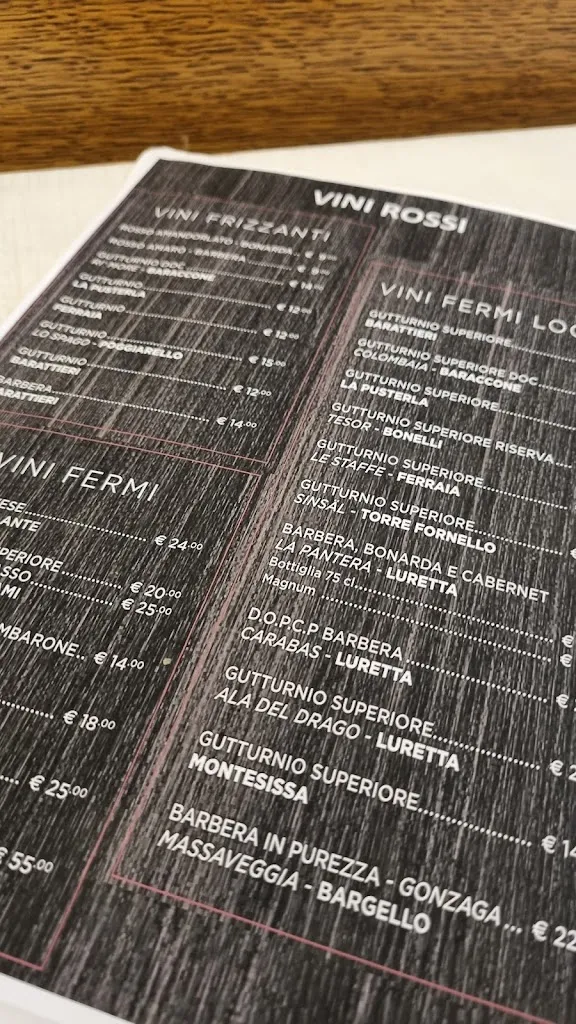 VINI ROSSI
VINI FRIZZANTI
ROSSO AMANDORLATO - BONARDA
ROSSO AMARO - BARBERA
GUTTURNIO DOC
BARACCONE
GUTTURNIO
LA PUSTERLA
€ 12.00
GUTTURNIO
FERRAIA
€ 12.00
GUTTURNIO
LO SPAGO - POGGIARELLO
€ 15.00
GUTTURNIO
BARATTIERI
€ 12.00
BARBERA
BARATTIERI
€ 14.00
VINI FERMI
ESE
ANTE
€ 24.00
PERIORE
€ 20.00
ASSO
€ 25.00
AMI
MBARONE.. € 14.00
€ 18.00
€ 25.00
€ 55.00
VINI FERMI LOC
GUTTURNIO SUPERIORE
BARATTIERI
GUTTURNIO SUPERIORE DOC
COLOMBAIA - BARACCONE
GUTTURNIO SUPERIORE
LA PUSTERLA
GUTTURNIO SUPERIORE RISERVA
TESOR - BONELLI
GUTTURNIO SUPERIORE
LE STAFFE - FERRAIA
GUTTURNIO SUPERIORE
SINSÀL - TORRE FORNELLO
BARBERA, BONARDA E CABERNET
LA PANTERA - LURETTA
Bottiglia 75 cl €
Magnum €
D.O.P.C.P BARBERA €
CARABAS - LURETTA
GUTTURNIO SUPERIORE € 2
ALA DEL DRAGO - LURETTA
GUTTURNIO SUPERIORE € 14
MONTESISSA
BARBERA IN PUREZZA - GONZAGA... € 22
MASSAVEGGIA - BARGELLO